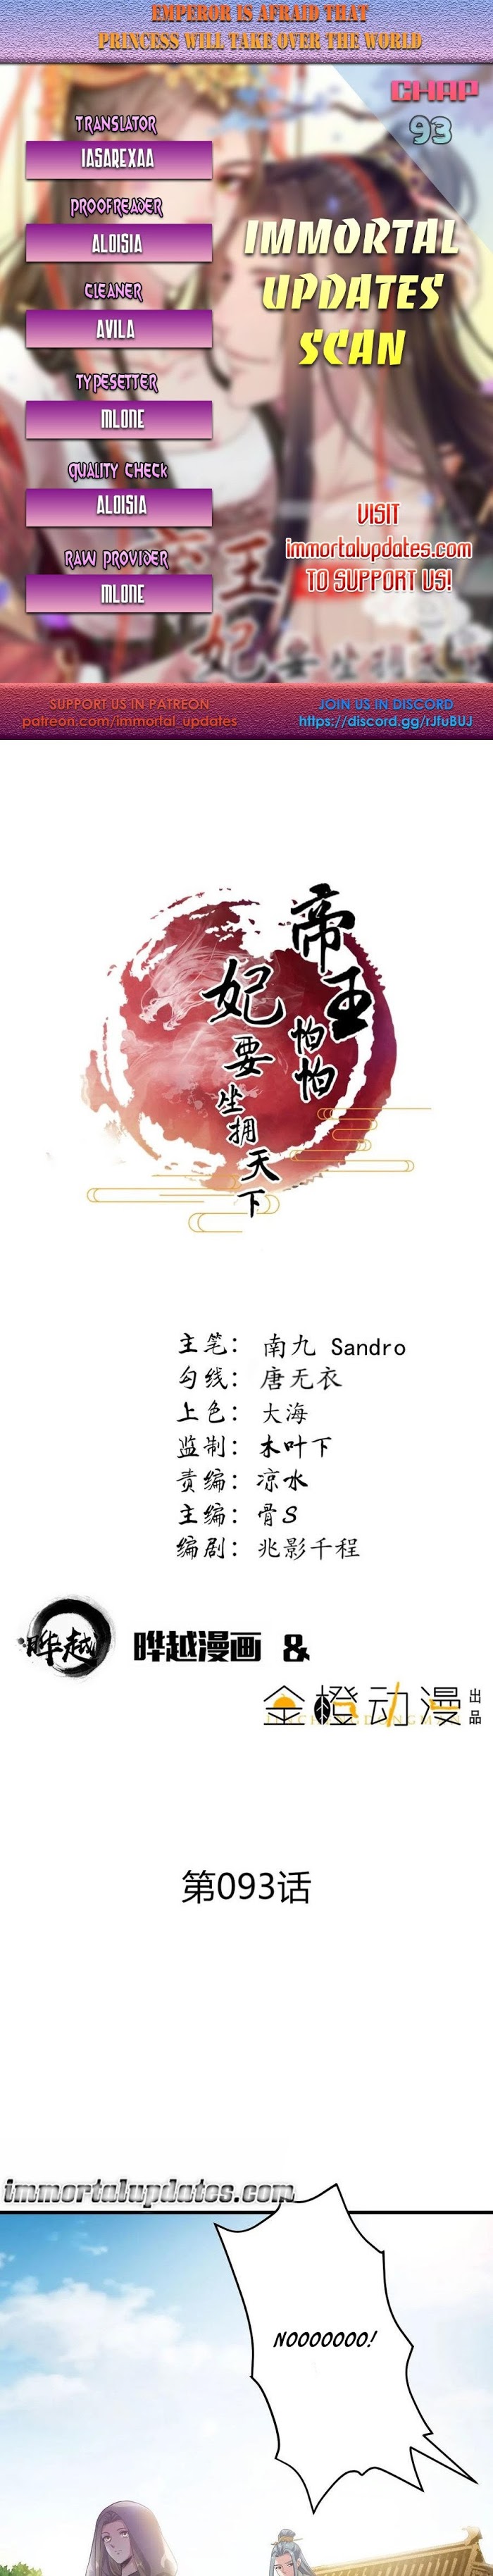 EMPEROR IS AFRAID THAT
PRINCESS WILL TAKE OVER THE WORLD
CHAP
93
TRANSLATOR
IASAREXAA
PROOFREADER
ALOISIA
CLEANER
AVILA
TYPESETTER
MLONE
QUALITY CHECK
ALOISIA
RAW PROVIDER
MLONE
IMMORTAL
UPDATES
SCAN
VISIT
immortalupdates.com
TO SUPPORT US!
SUPPORT US IN PATREON
patreon.com/immortal_updates
JOIN US IN DISCORD
https://discord.gg/rJfuBUJ
帝王怕怕
妃要坐拥天下
主笔：南九 Sandro
勾线：唐无衣
上色：大海
监制：木叶下
责编：凉水
主编：骨S
编剧：兆影千程
晔越
晔越漫画 &
金橙动漫出品
第093话
immortalupdates.com
NOOOOOOO!